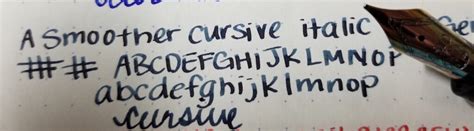 A Smoother cursive italic Ge
## ABCDEFGHIJKLMNOP
abcdefghijklmnop
cursive